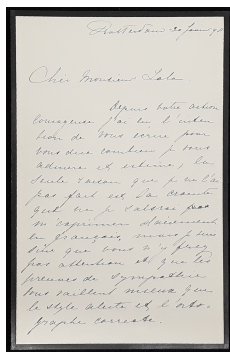 Rotterdam 20 Janv. 98
Cher Monsieur Zola
Depuis votre action
courageuse j'ai eu l'inten
tion de vous écrire pour
vous dire combien je vous
admire et estime, la
seule raison que je ne l'ai
pas fait est, la crainte
que ne je saurai pas
m'exprimer clairement
en français, mais je suis
sûre que vous n'y ferez
pas attention et, que les
preuves de sympathie
vous vaillent mieux que
le style alerte et, l'orto-
graphe correcte.